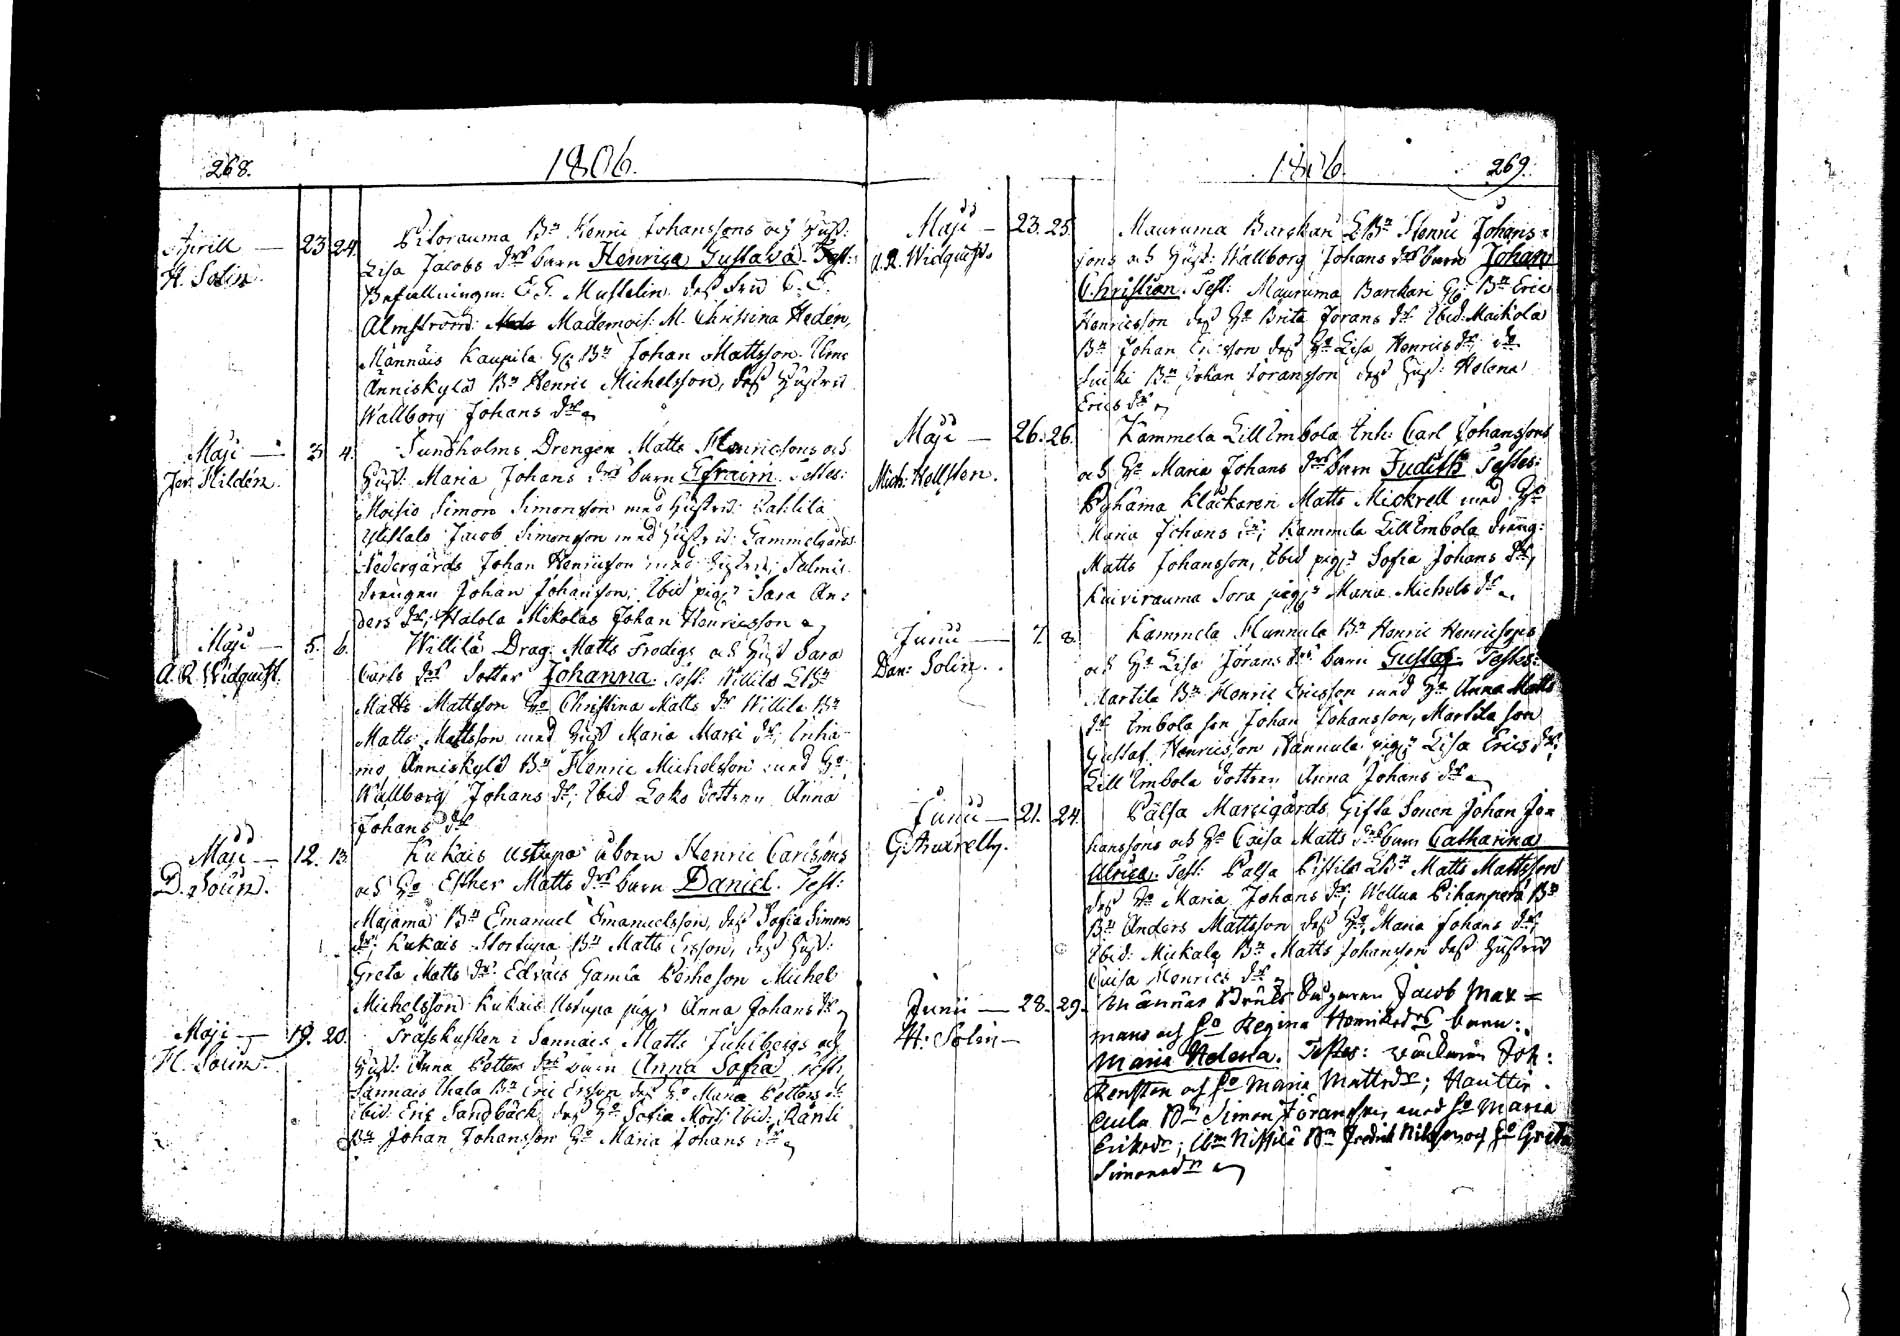 268.
1806.
Aprill — 23 24. Pitorauma Bn Henric Johanssons och Hust:
H. Solin. Lisa Jacobs drs barn Henrica Gustava. Test:
Befallningsm: E. G. Musselin dess Fru C. C.
Almström: Mademois: M. Christina Hedén,
Mannäis Kaupila Bn Johan Mattsson.
Änniskylä Bn Henric Michelsson, dess Hustru
Wallborg Johans dr
Maji — 3 4. Sundholms Drengen Matts Henricssons och
Jer: Hildén. Hust: Maria Johans drs barn Efraim. Testes:
Moisio Simon Simonsson med Hustru:
Jacob Simonsson med Hustru: Gammelgårds
Nedergårds Johan Henricsson med Hustru; Salmis
drengen Johan Johansson; Ibid pig: Sara An:
ders dr; Halola Mikolas Johan Henricsson
Maji — 5. 6. Willilä Dräg: Matts Frodigs och Hust Sara
A. R. Widquist. Carls drs dotter Johanna. Test: Willilä Bn
Matts Mattsson Ho Christina Matts dr Willilä Bn
Matts Mattsson med Hust Maria Marci dr; Inha
mo Änniskylä Bn Henric Michelsson med Ho
Wallborg Johans dr; Ibid dottren Anna
Johans dr
Maji — 12. 13. Kukais Ustupa åboen Henric Carlssons
D. Solin. och Ho Esther Matts drs barn Daniel. Test:
Majama Bn Emanuel Emanuelsson, dess Sofia Simons
dr: Kukais Stortupa Bn Matts Ersson, dess Hust:
Greta Matts dr: Edväis Gamla Perheson Michel
Michelsson Kukais Ustupa pig: Anna Johans dr
Maji — 19. 20. i Sannais Matts Juhlbergs och
H. Solin. Hust: Anna Petters drs barn Anna Sofia Test:
Sannais Uhala Bn Eric Ersson dess Ho Maria Petters dr
Ibid: Eric Sandbäck dess Ho Sofia Ibid: Ränti
Bn Johan Johansson Ho Maria Johans dr
1806.
269.
Maji — 23. 25. Mauruma Barskari Bn Henric Johans:
A. R. Widquist. sons och Hust: Wallborg Johans drs barn Johan
Christian. Test: Mauruma Barskari Bn Eric
Henricsson dess Ho Brita Jörans dr Ibid: Maikola
Bn Johan Ericsson dess Ho Lisa Henrics dr;
Bn Johan Joransson dess Hust: Helena
Erics dr
Maji — 26. 26. Kammela Lill Embola Inh: Carl Johanssons
Mich: Hellsten. och Ho Maria Johans drs barn Judith Testes:
Pyhäma Klåckaren Matts Mickrell med Ho
Maria Johans dr; Kammela Lill Embola dräng:
Matts Johansson, Ibid pig: Sofia Johans dr;
Kuivirauma Sora pig: Maria Michels dr
Junii — 7. 8. Kammela Hannula Bn Henric Henricssons
Dan: Solin. och Ho Lisa Jörans drs barn Gustaf. Testes:
Martila Bn Henric Ericsson med Ho Anna Matts
dr Embola son Johan Johansson, Martila son
Gustaf Henricsson Hannula pig: Lisa Erics dr;
Lill Embola dottren Anna Johans dr
Junii — 21. 24. Pälsa Marcigårds Gifta Sonen Johan Jo=
G. Avrell. hanssons och Ho Caisa Matts drs barn Catharina
Ulrica. Test: Palsa Pistila Bn Matts Mattsson
dess Ho Maria Johans dr; Wellua Pihanperä Bn
Bn Anders Mattsson dess Ho Maria Johans dr;
Ibid: Mickala Bn Matts Johansson dess Hustru
Caisa Henrics dr
Junii — 28. 29. Männäs Jacob Max=
H: Solin — mans och Ho Regina Henriksdrs barn:
Maria Helena. Testes: Joh:
Rensten och Ho Maria Mattsdr; Hauttin
Aula Bn Simon Jöransson, med Ho Maria
Eriksdr; Nissilä Bn Fredrik Nilsson, och Ho Greta
Simonsdr